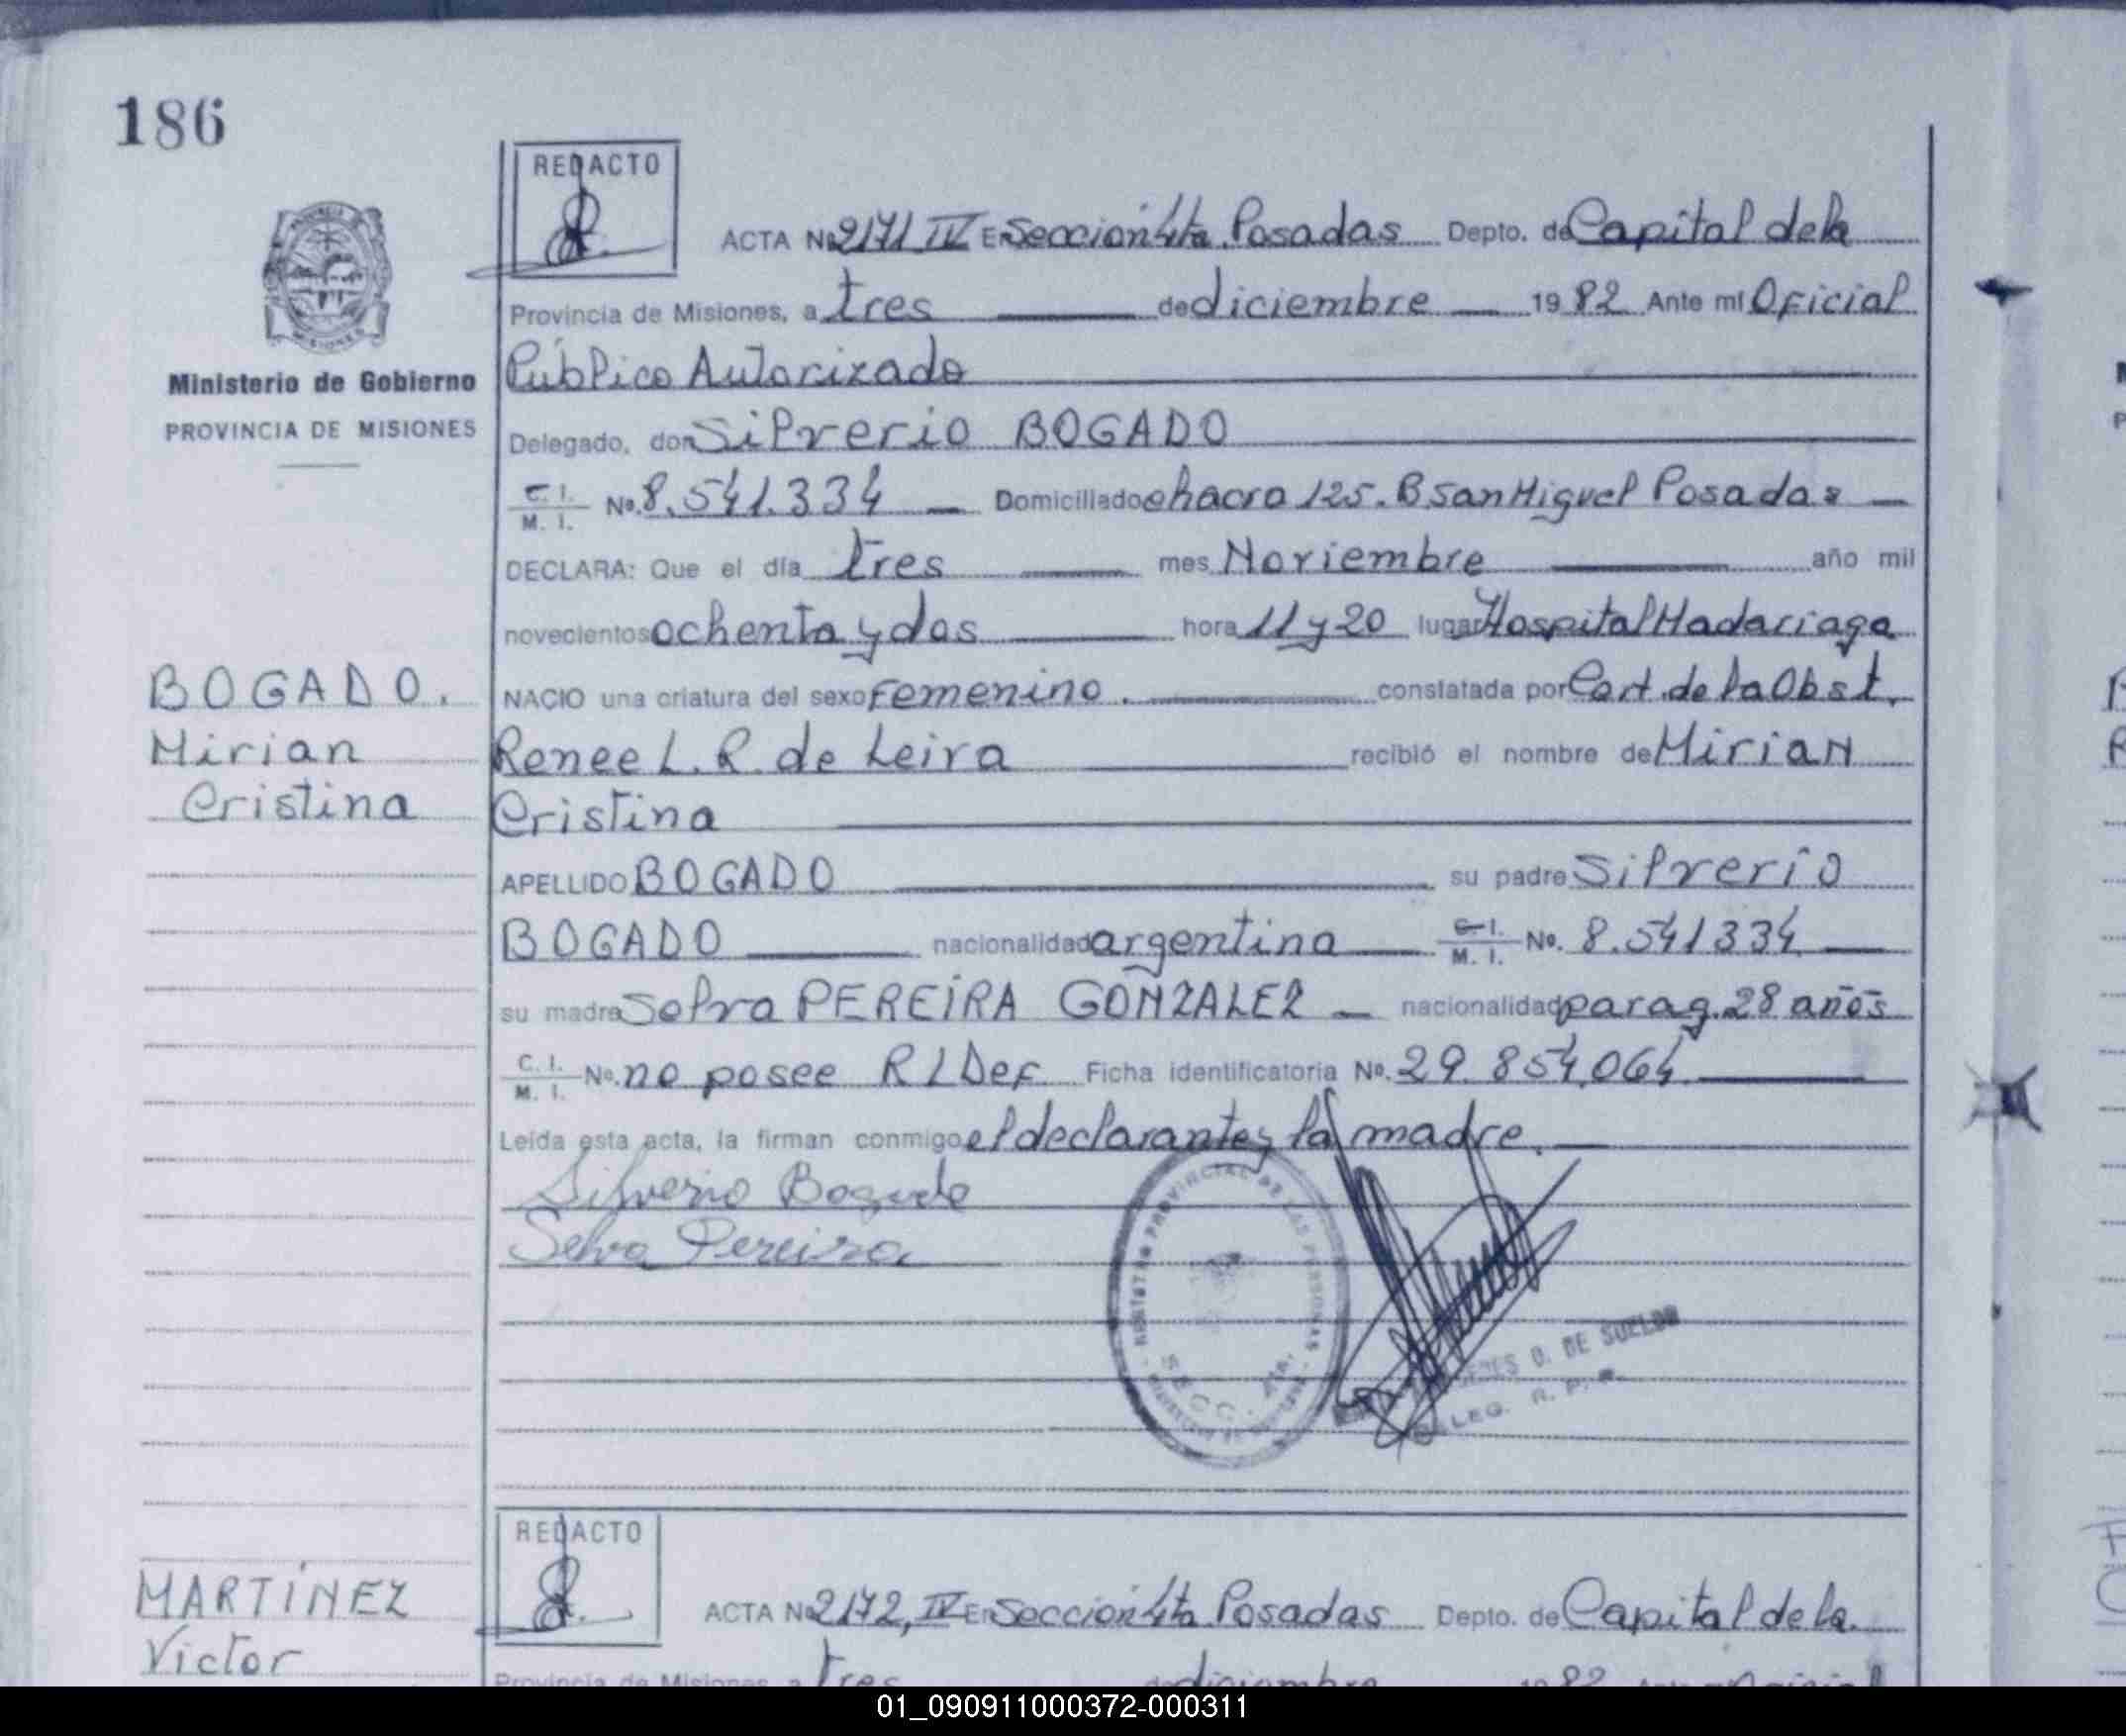 186
REDACTO
ACTA No 2171 IV En Sección 4ta. Posadas Depto. de Capital de la
Provincia de Misiones, a tres de diciembre 1982 Ante mí Oficial
Ministerio de Gobierno
PROVINCIA DE MISIONES
Público Autorizado
Delegado, don Silverio BOGADO
C. I. M. I. No. 8.541.334 Domiciliado chacra 125. B San Miguel Posadas
DECLARA: Que el día tres mes Noviembre año mil
novecientos ochenta y dos hora 11 y 20 lugar Hospital Madariaga
BOGADO.
Mirian
Cristina
NACIO una criatura del sexo Femenino. constatada por Cert. de la Obst.
Renee L. R. de Leiva recibió el nombre de Mirian
Cristina
APELLIDO BOGADO su padre Silverio
BOGADO nacionalidad argentina C. I. M. I. No. 8.541334
su madre Selva PEREIRA GONZALEZ nacionalidad parag. 28 años
C. I. M. I. No. no posee R/Def Ficha identificatoria No. 29.854.064
Leída esta acta, la firman conmigo el declarante y la madre.
Silverio Bogado
Selva Pereira
REGISTRO PROVINCIAL DE LAS PERSONAS
SECC. 4TA.
D. DE SUELDO
DELEG. R. P. P.
REDACTO
MARTÍNEZ
Victor
ACTA No 2172, IV En Sección 4ta Posadas Depto. de Capital de la.
Provincia de Misiones, a tres de diciembre 1982
01_090911000372-000311